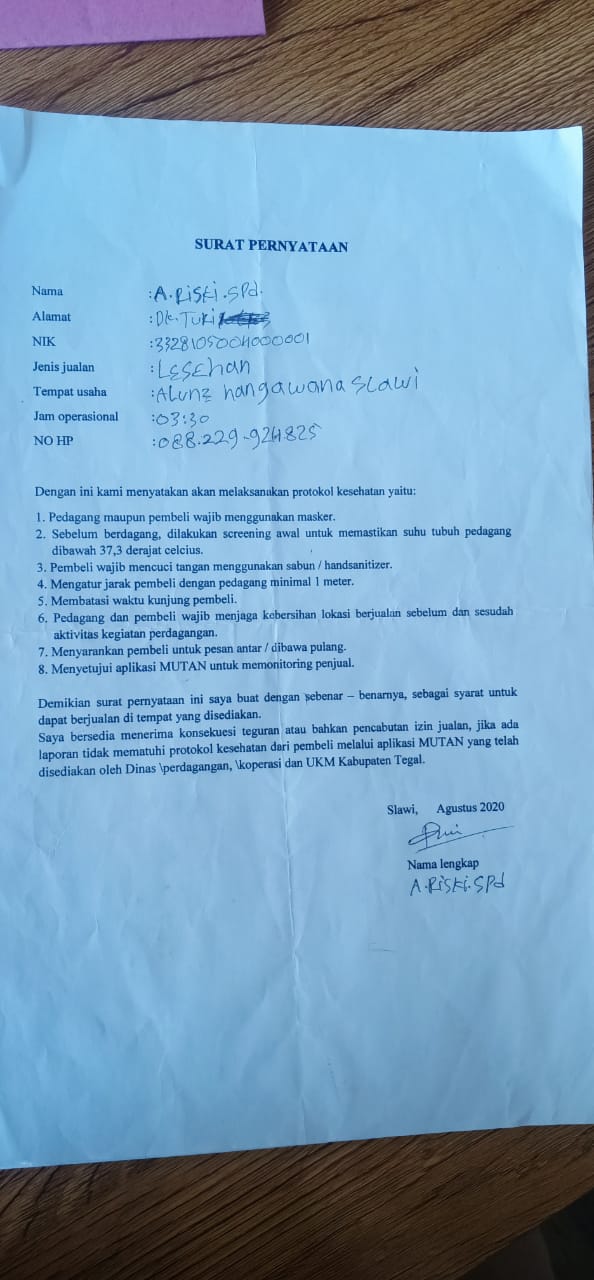 SURAT PERNYATAAN
Nama :A.Riski.SPd.
Alamat :Dk. Turi
NIK :3328105004000001
Jenis jualan :Lesehan
Tempat usaha :Alunz hangawana Slawi
Jam operasional :03:30
NO HP :088.229-924825
Dengan ini kami menyatakan akan melaksanakan protokol kesehatan yaitu:
1. Pedagang maupun pembeli wajib menggunakan masker.
2. Sebelum berdagang, dilakukan screening awal untuk memastikan suhu tubuh pedagang
dibawah 37,3 derajat celcius.
3. Pembeli wajib mencuci tangan menggunakan sabun / handsanitizer.
4. Mengatur jarak pembeli dengan pedagang minimal 1 meter.
5. Membatasi waktu kunjung pembeli.
6. Pedagang dan pembeli wajib menjaga kebersihan lokasi berjualan sebelum dan sesudah
aktivitas kegiatan perdagangan.
7. Menyarankan pembeli untuk pesan antar / dibawa pulang.
8. Menyetujui aplikasi MUTAN untuk memonitoring penjual.
Demikian surat pernyataan ini saya buat dengan sebenar – benarnya, sebagai syarat untuk
dapat berjualan di tempat yang disediakan.
Saya bersedia menerima konsekuesi teguran atau bahkan pencabutan izin jualan, jika ada
laporan tidak mematuhi protokol kesehatan dari pembeli melalui aplikasi MUTAN yang telah
disediakan oleh Dinas \perdagangan, \koperasi dan UKM Kabupaten Tegal.
Slawi, Agustus 2020
Nama lengkap
A.Riski.SPd